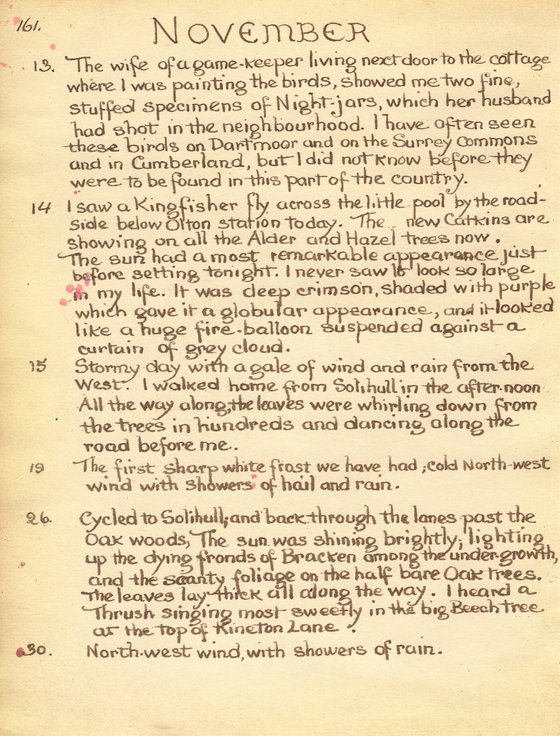 161.
NOVEMBER
13. The wife of a game-keeper living next door to the cottage
where I was painting the birds, showed me two fine,
stuffed specimens of Night-jars, which her husband
had shot in the neighbourhood. I have often seen
these birds on Dartmoor and on the Surrey Commons
and in Cumberland, but I did not know before they
were to be found in this part of the country.
14 I saw a Kingfisher fly across the little pool by the road-
side below Olton station today. The new Catkins are
showing on all the Alder and Hazel trees now.
The sun had a most remarkable appearance just
before setting tonight. I never saw it look so large
in my life. It was deep crimson, shaded with purple
which gave it a globular appearance, and it looked
like a huge fire-balloon suspended against a
curtain of grey cloud.
15 Stormy day with a gale of wind and rain from the
West. I walked home from Solihull in the after-noon
All the way along, the leaves were whirling down from
the trees in hundreds and dancing along the
road before me..
19 The first sharp white frost we have had; cold North-west
wind with showers of hail and rain.
26. Cycled to Solihull, and back through the lanes past the
Oak woods, The sun was shining brightly, lighting
up the dying fronds of Bracken among the under-growth,
and the scanty foliage on the half bare Oak trees.
The leaves lay thick all along the way. I heard a
Thrush singing most sweetly in the big Beech tree
at the top of Kineton Lane.
30. North-west wind, with showers of rain.